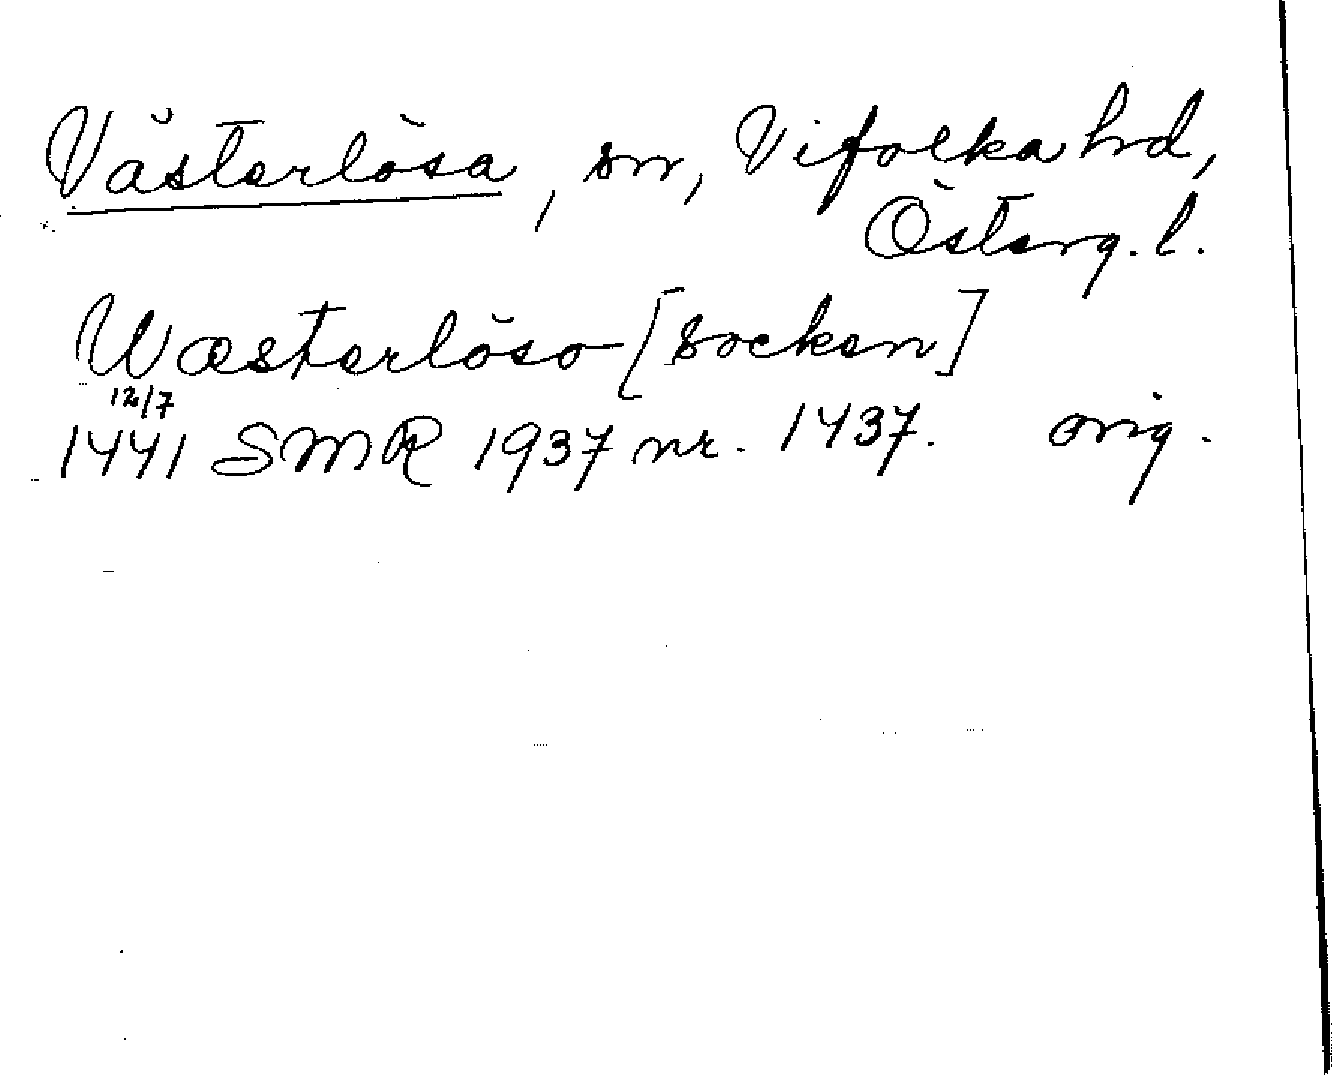 Västerlösa, sn, Vifolka hd,
Österg. l.
Wæsterlöso [socken]
12/7
1441 SMR 1937 nr. 1437. orig.